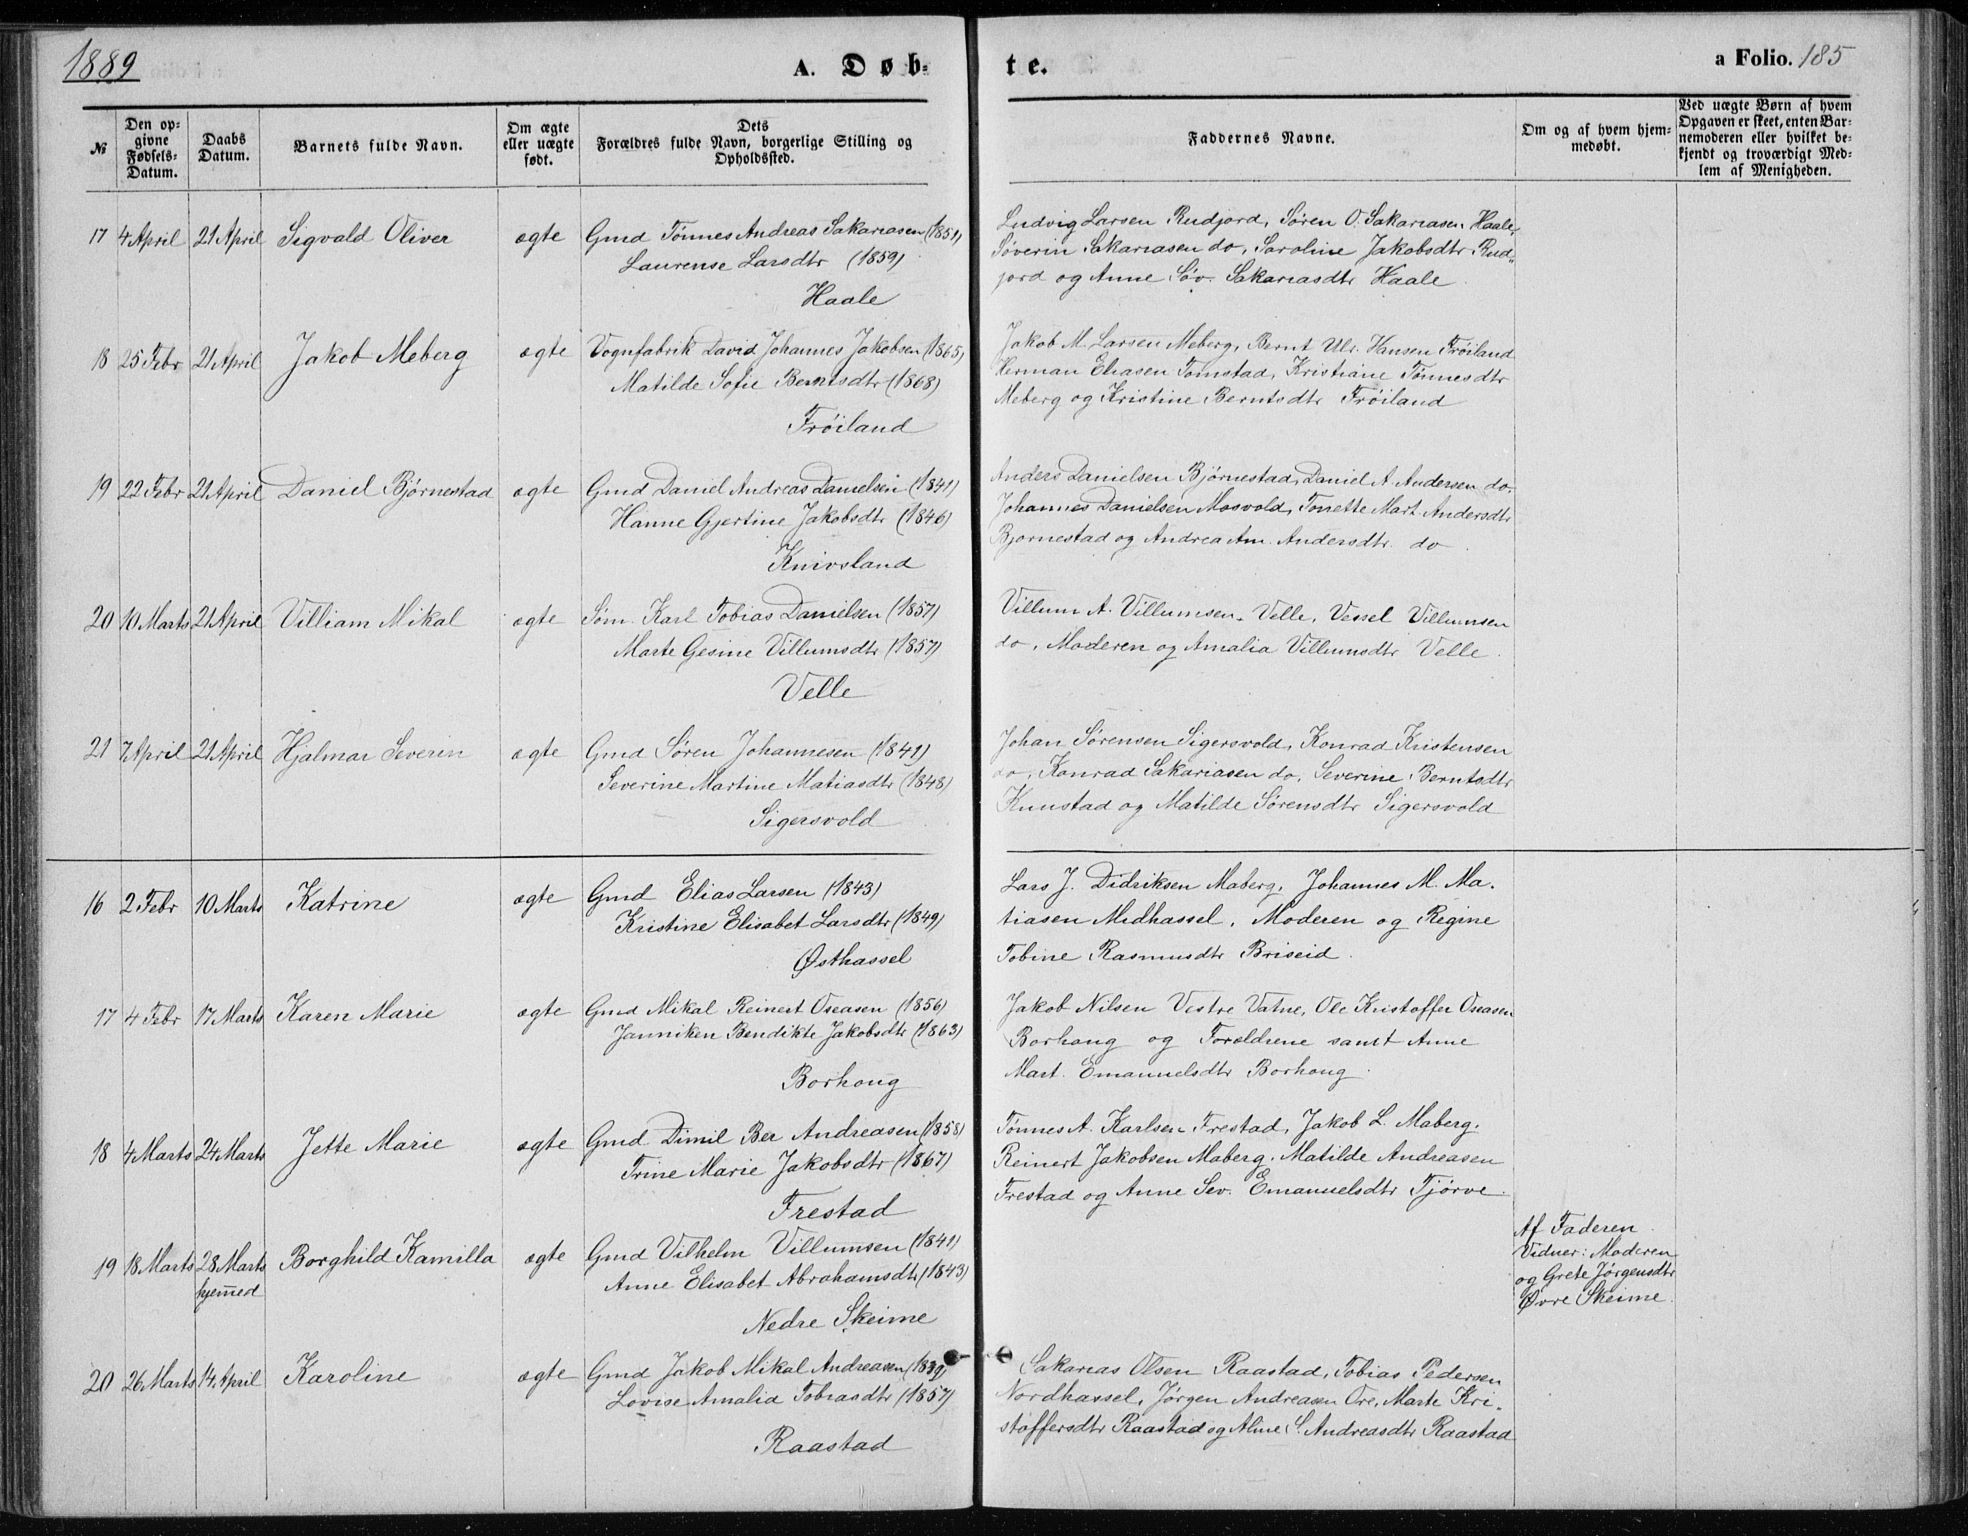 1889
A. Døb-
te.
a Folio. 185
№
Den op-
givne
Fødsels-
Datum.
Daabs
Datum.
Barnets fulde Navn.
Om ægte
eller uægte
født.
Dets
Forældres fulde Navn, borgerlige Stilling og
Opholdssted.
Faddernes Navne.
Om og af hvem hjem-
medøbt.
Ved uægte Børn af hvem
Opgaven er skeet, enten Bar-
nemoderen eller hvilket be-
kjendt og troværdigt Med-
lem af Menigheden.
17 4 April 21 April Sigvald Oliver ægte Gmd Tönnes Andreas Sakariasen (1851)
Laurense Larsdtr (1859)
Haale
Ludvig Larsen Rudjord, Søren O. Sakariasen Haale,
Söverin Sakariasen do, Saroline Jakobsdtr Rud„
jord og Anne Söv. Sakariasdtr Haale
18 25 Febr 21 April Jakob Meberg ægte Vognfabrik David Johannes Jakobsen (1865)
Matilde Sofie Berntsdtr (1868)
Fröiland
Jakob M. Larsen Meberg, Bernt Ulr. Hansen Fröiland
Herman Eliasen Tomstad, Kristiane Tönnesdtr
Meberg og Kristine Berntsdtr Fröiland
19 22 Febr 21 April Daniel Bjørnestad ægte Gmd Daniel Andreas Danielsen (1841)
Hanne Gjertine Jakobsdtr (1846)
Knivsland
Anders Danielsen Bjørnestad, Daniel A Andersen do,
Johannes Danielsen Mosvold, Tonette Mart. Andersdtr
Bjornestad og Andrea Am. Andersdtr. do
20 10 Marts 21 April Villiam Mikal ægte Søm. Karl Tobias Danielsen (1857)
Marte Gesine Villumsdtr (1857)
Velle
Villum A. Villumsen Velle, Vessel Villumsen
do, Moderen og Amalia Villumsdtr Velle.
21 7 April 21 April Hjalmar Severin ægte Gmd Søren Johannesen (1841)
Severine Martine Matiasdtr (1848)
Sigersvold
Johan Sørensen Sigersvold, Konrad Kristensen
do, Konrad Sakariasen do, Severine Berntsdtr
Kunstad og Matilde Sørensdtr Sigersvold
16 2 Febr 10 Marts Katrine ægte Gmd Elias Larsen (1843)
Kristine Elisabet Larsdtr (1849)
Østhassel
Lars J. Didriksen Maberg, Johannes M. Ma-
tiasen Midhassel, Moderen og Regine
Tobine Rasmusdtr Briseid.
17 4 Febr 17 Marts Karen Marie ægte Gmd Mikal Reinert Oseasen (1856)
Janniken Bendikte Jakobsdtr (1863)
Borhoug
Jakob Nilsen Vestre Vatne, Ole Kristoffer Oseasen
Borhoug og Forældrene samt Anne
Mart. Emanuelsdtr Borhoug.
18 4 Marts 24 Marts Jette Marie ægte Gmd Dimil Ber Andreasen (1858)
Trine Marie Jakobsdtr (1867)
Frestad
Tønnes A. Karlsen Frestad, Jakob L. Maberg.
Reinert Jakobsen Maberg. Matilde Andreasen
Frestad og Anne Sev. Emanuelsdtr Tjørve.
19 18 Marts 28 Marts Borghild Kamilla ægte Gmd Vilhelm Villumsen (1841)
hjemmed
Anne Elisabet Abrahamsdtr (1843)
Nedre Skeime
Af Faderen
Vidner: Moderen
og Grete Jørgensdtr
Øvre Skeime.
20 26 Marts 14 April Karoline ægte Gmd Jakob Mikal Andreasen (1839)
Lovise Amalia Tobiasdtr (1857)
Raastad
Sakarias Olsen Raastad, Tobias Pedersen
Nordhassel, Jørgen Andreasen Ore, Marte Kri-
stoffersdtr Raastad og Aline S. Andreasdtr Raastad